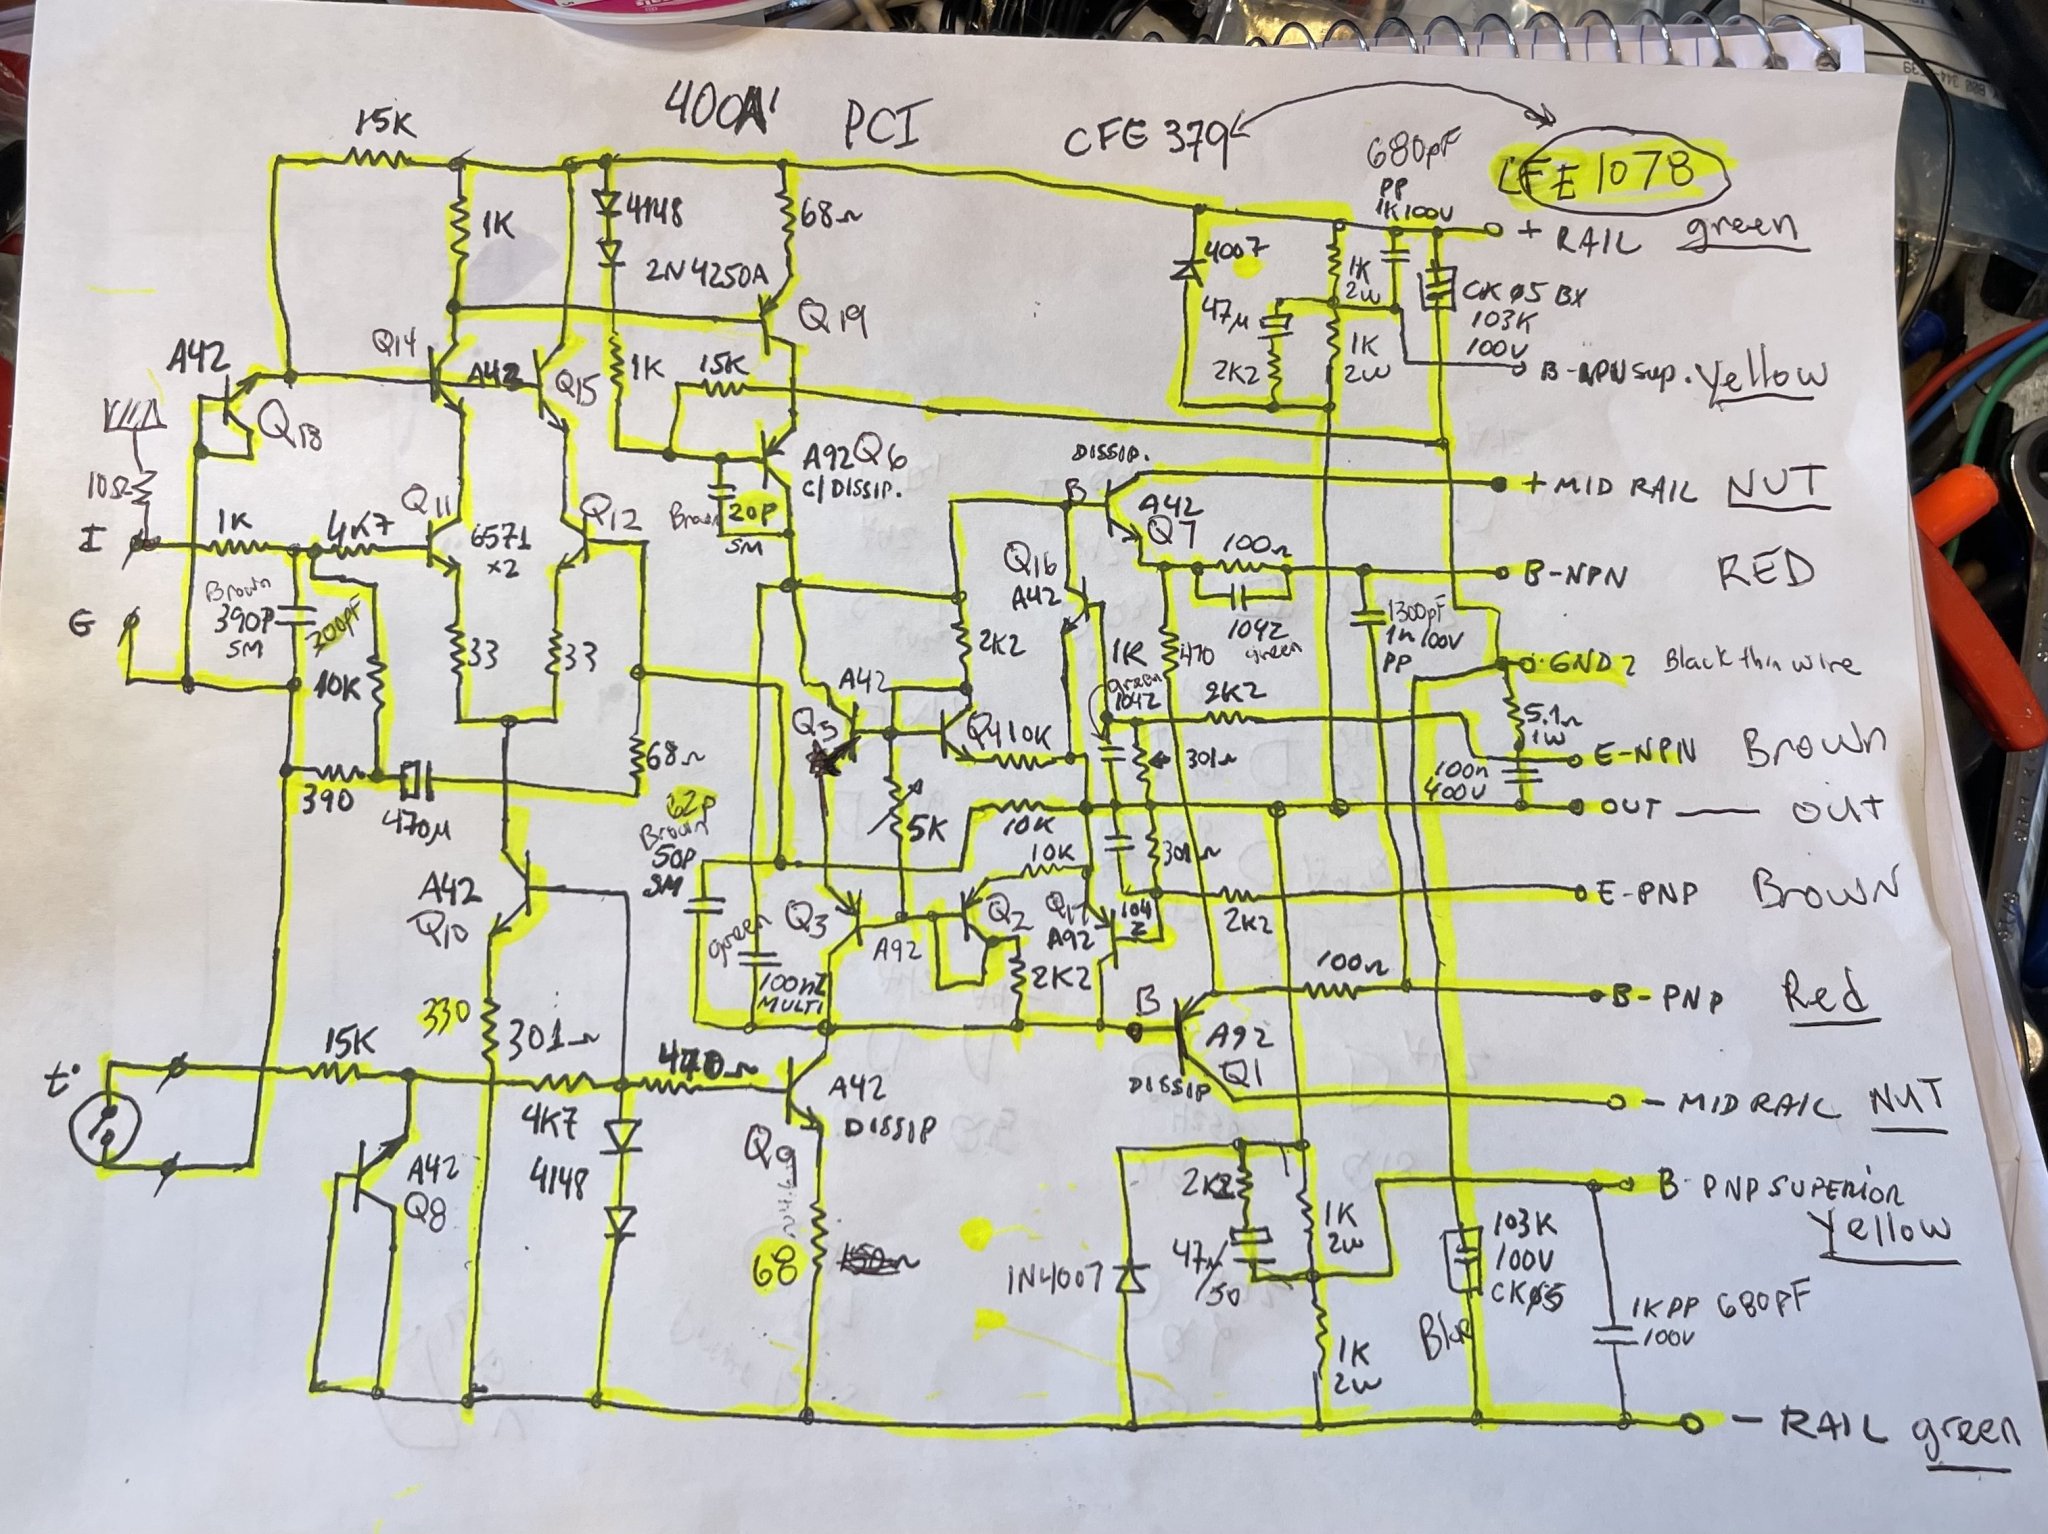 400A' PCI
CFE 379
LFE 1078
15K
1K
4148
2N4250A
68Ω
Q19
4007
680pF
PP
1K100V
+ RAIL green
1K
2W
CKØ5 BX
103K
100V
47µ
2K2
1K
2W
B-NPN SUP. Yellow
A42
Q18
Q14
A42
Q15
1K
15K
A92 Q6
C/DISSIP.
Brown
20P
SM
DISSIP.
B
A42
Q7
+ MID RAIL NUT
10Ω
I
1K
4K7
Q11
6571
x2
Q12
Q16
A42
100Ω
104Z
green
B-NPN RED
1300pF
1n 100V
PP
G
Brown
390P
SM
200pF
10K
33
33
2K2
1K
green
104Z
470
2K2
GND 2 Black thin wire
5.1Ω
1W
A42
Q5
Q4
10K
301Ω
E-NPN Brown
100n
400V
390
470µ
68Ω
5K
10K
OUT — OUT
62P
Brown
50P
SM
10K
301Ω
A42
Q10
Q3
A92
Q2
Q17
A92
104
Z
2K2
E-PNP Brown
green
100nZ
MULTI
2K2
100Ω
B-PNP Red
330
301Ω
B
A92
Q1
DISSIP
t°
15K
4K7
470Ω
A42
DISSIP
Q9
- MID RAIL NUT
A42
Q8
4148
68
150Ω
2K2
47µ/50
1N4007
1K
2W
1K
2W
B-PNP SUPERIOR
Yellow
103K
100V
CKØ5
1KPP 680pF
100V
- RAIL green